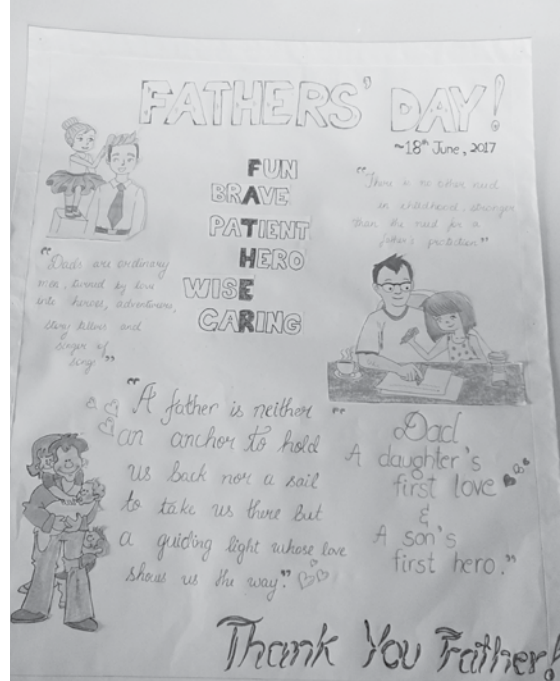 FATHERS' DAY!
~18th June, 2017
FUN
BRAVE
PATIENT
HERO
WISE
CARING
"There is no other need
in childhood stronger
than the need for a
father's protection"
"Dads are ordinary
men, turned by love
into heroes, adventurers,
story tellers and
singer of
song"
"A father is neither
an anchor to hold
us back nor a sail
to take us there but
a guiding light whose love
shows us the way."
"Dad
A daughter's
first love
&
A son's
first hero."
Thank You Father!